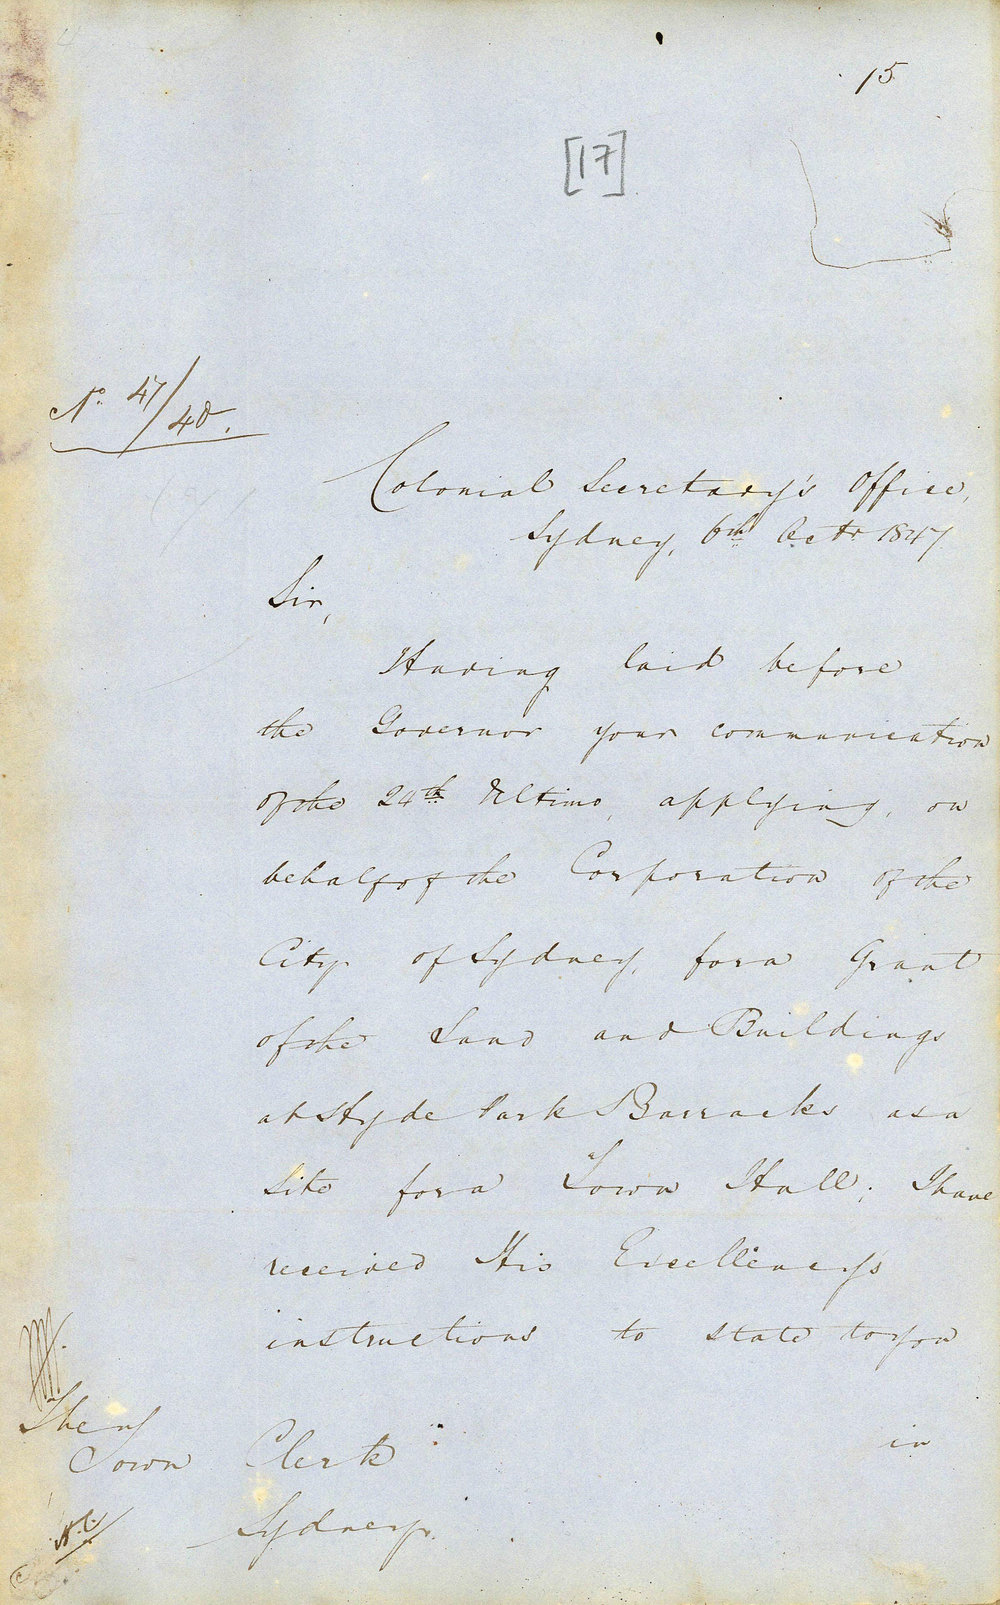 15
[17]
No. 47/40.
Colonial Secretary's Office,
Sydney, 6th Octr. 1847
Sir,
Having laid before
the Governor your communication
of the 24th Ultimo, applying, on
behalf of the Corporation of the
City of Sydney, for a Grant
of the Land and Buildings
at Hyde Park Barracks as a
site for a Town Hall; I have
received His Excellency's
instructions to state to you
in
The
Town Clerk
Sydney.